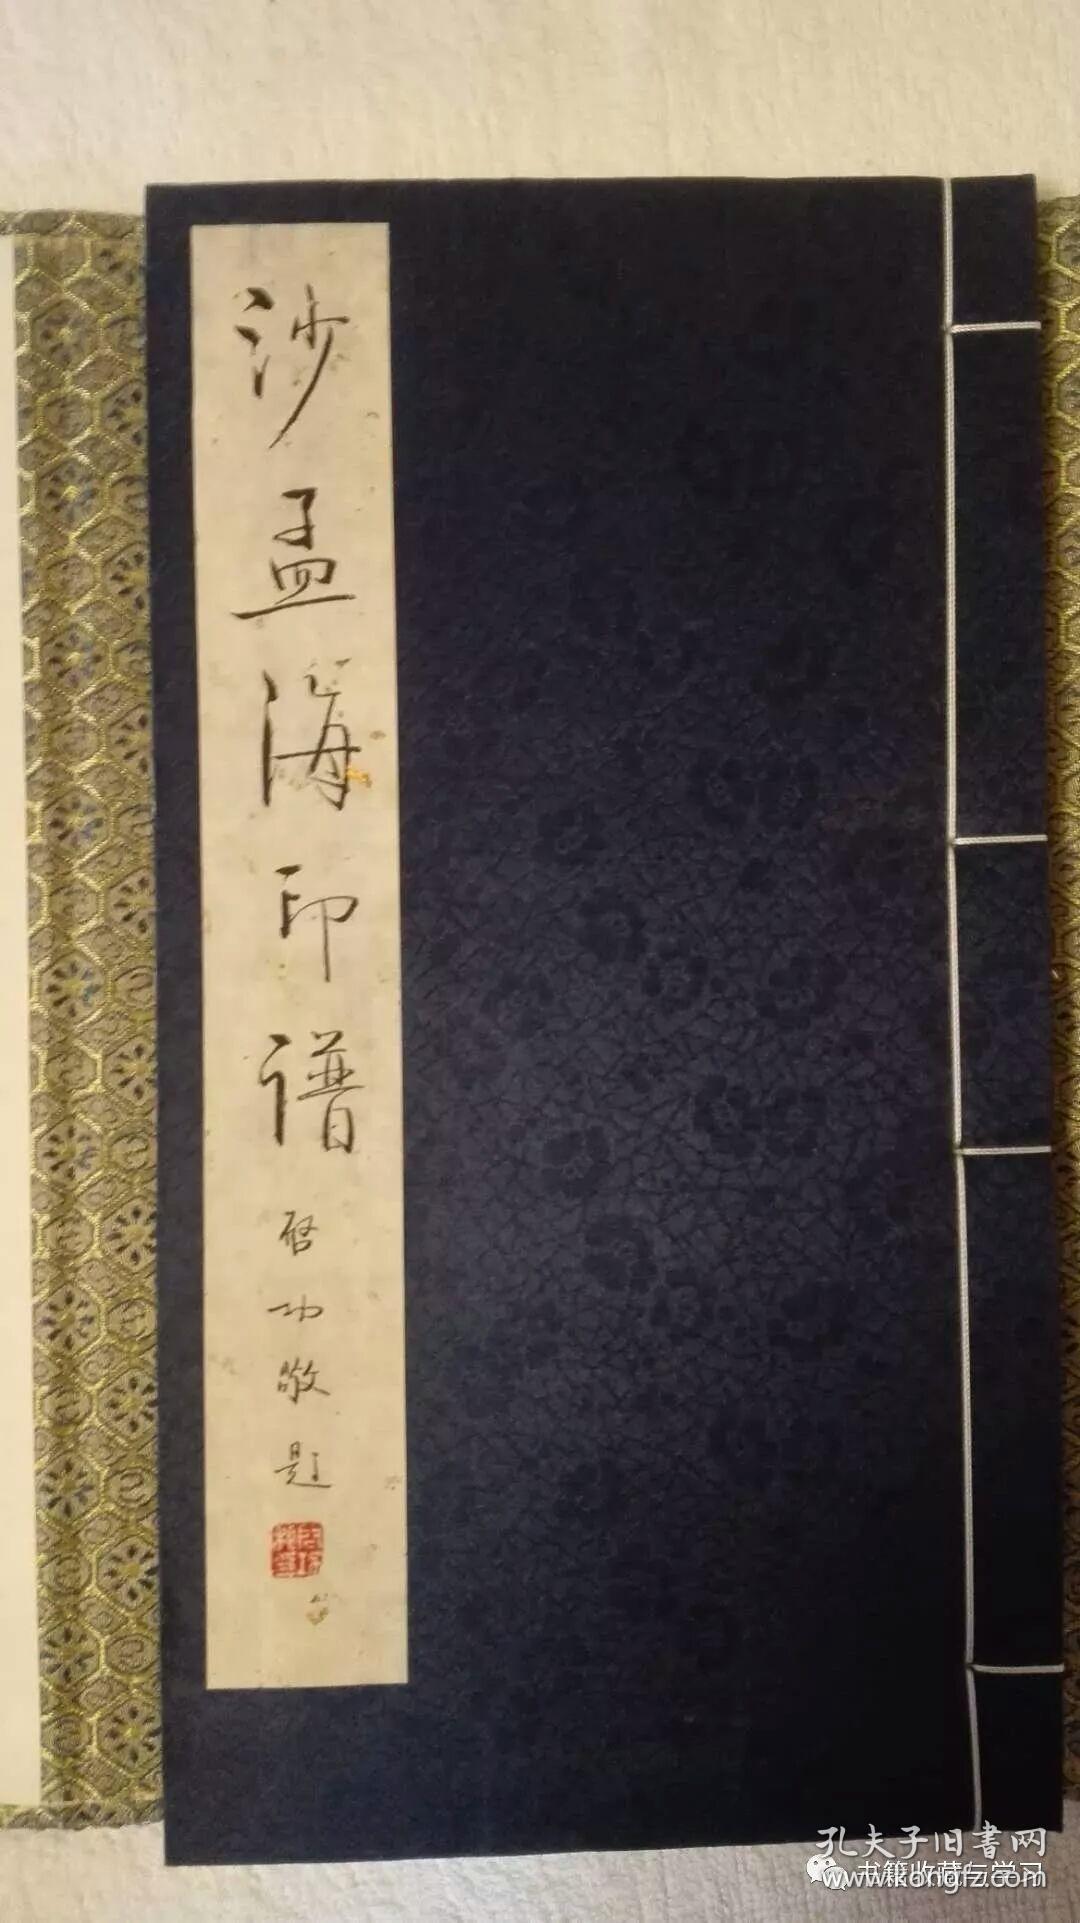 沙孟海印谱
启功敬题
孔夫子旧书网
书籍收藏与学习
www.kongfz.com